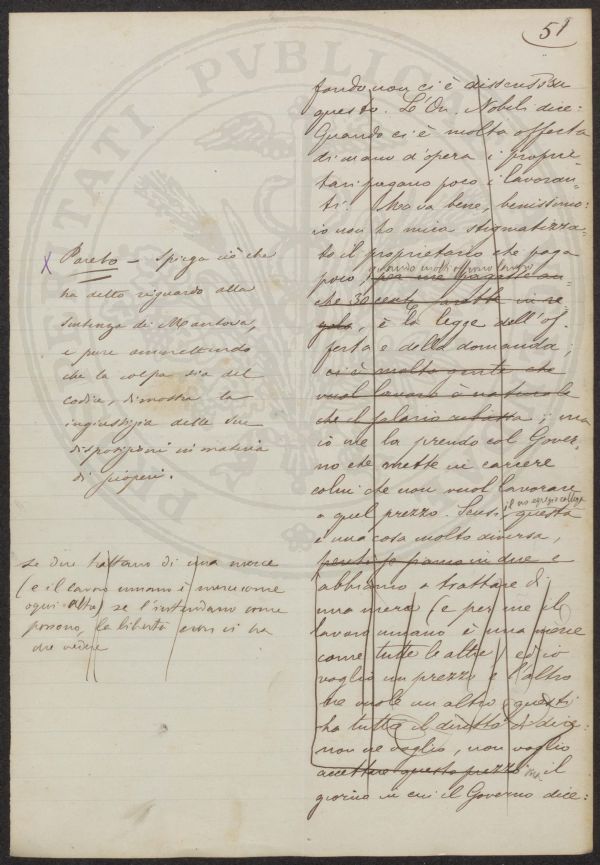 51
Pareto – Spiega ciò che
ha detto riguardo alla
sentenza di Mantova,
e pure ammettendo
che la colpa sia del
codice, dimostra la
ingiustizia delle sue
disposizioni in materia
di scioperi.
se due trattano di una merce
(e il lavoro umano è merce come
ogni altra) se l'intendano come
possono, la libertà non ci ha
che vedere
fondo non ci è discussa
questo. L'On. Nobili dice:
Quando ci è molta offerta
di mano d'opera i proprie-
tari pagano poco i lavoran-
ti. Ma va bene, benissimo:
io non ho mica stigmatizza-
to il proprietario che paga
quando molti offrono lavoro
poco, per me pagasse an-
che 30 cent. sarebbe in re
gola, è la legge dell'of-
ferta e della domanda;
ci è molta gente che
vuol lavoro è naturale
che il salario ribassa; ma
io me la prendo col Gover-
no che mette in carcere
colui che non vuol lavorare
il mio egregio collega
a quel prezzo. Scusi questa
è una cosa molto diversa,
perché se siamo in due e
abbiamo a trattare di
una merce (e per me il
lavoro umano è una merce
come tutte le altre) ed io
voglio un prezzo e l'altro
ne vuole un altro, questi
ha tutto il diritto di dire:
non ne voglio, non voglio
accettare questo prezzo ma il
giorno in cui il Governo dice:
PVBLICA